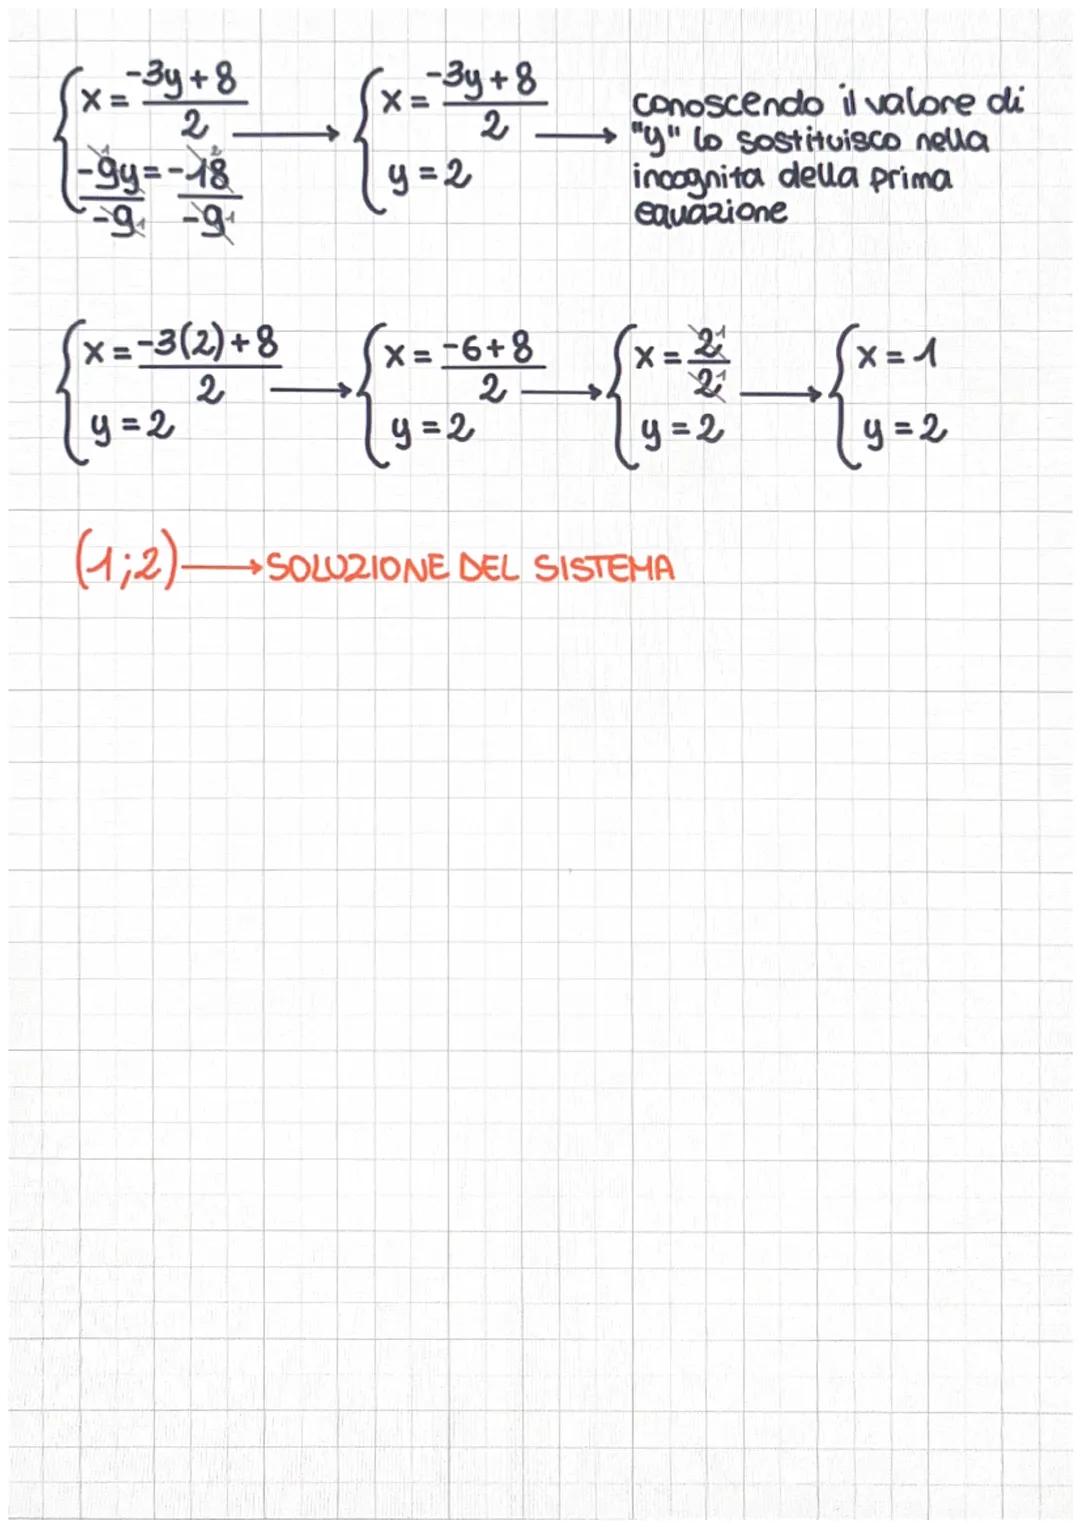 {x = (-3y+8)/2 → {x = (-3y+8)/2 → conoscendo il valore di
"y" lo sostituisco nella
incognita della prima
equazione
{-9y/-9 = -18/-9 {y = 2
{x = (-3(2)+8)/2 → {x = (-6+8)/2 → {x = 2/2 → {x = 1
{y = 2 {y = 2 {y = 2 {y = 2
(1;2) → SOLUZIONE DEL SISTEMA